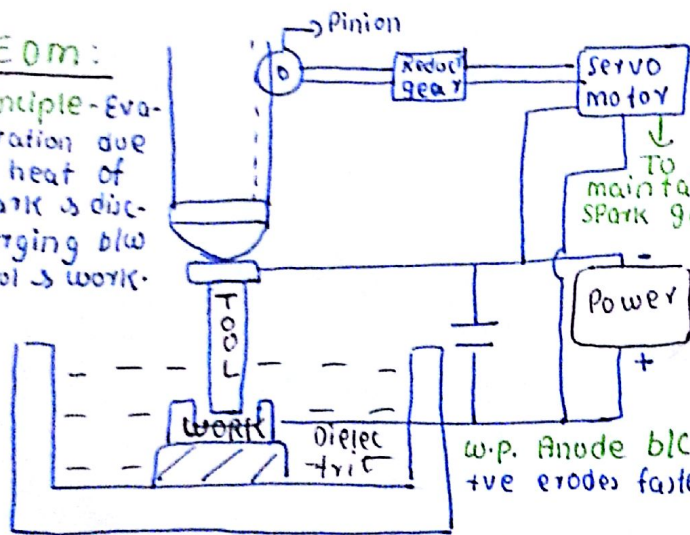 EDM:
nciple - Eva-
ration due
heat of
ark & disc-
rging b/w
ol & work.
Pinion
Reduct
gear
servo
motor
TO
mainta
spark g
TOOL
WORK
Dielec
-tric
-
Power
+
w.p. Anode b/c
+ve erodes faste